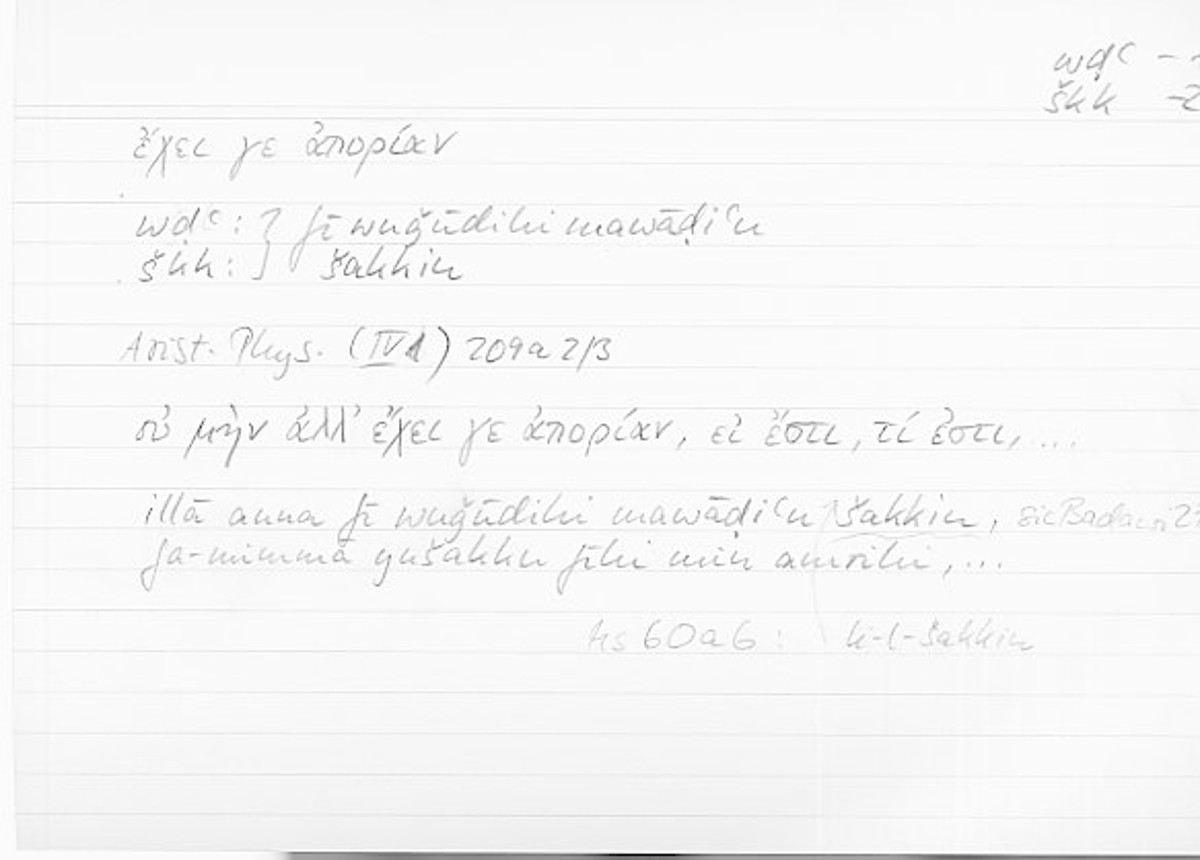 wḍʿ - -
škk -2
ἔχει γε ἀπορίαν
wḍʿ : } fī wuǧūdihi mawāḍiʿu
škk : } šakkin
Arist. Phys. (IV 1) 209a 2/3
οὐ μὴν ἀλλ' ἔχει γε ἀπορίαν, εἰ ἔστι, τί ἐστι, ...
illā anna fī wuǧūdihi mawāḍiʿu šakkin, sic Badawi
fa-mimmā yušakku fīhi min amrihi, ...
Hs 60a6 : li-l-šakkin